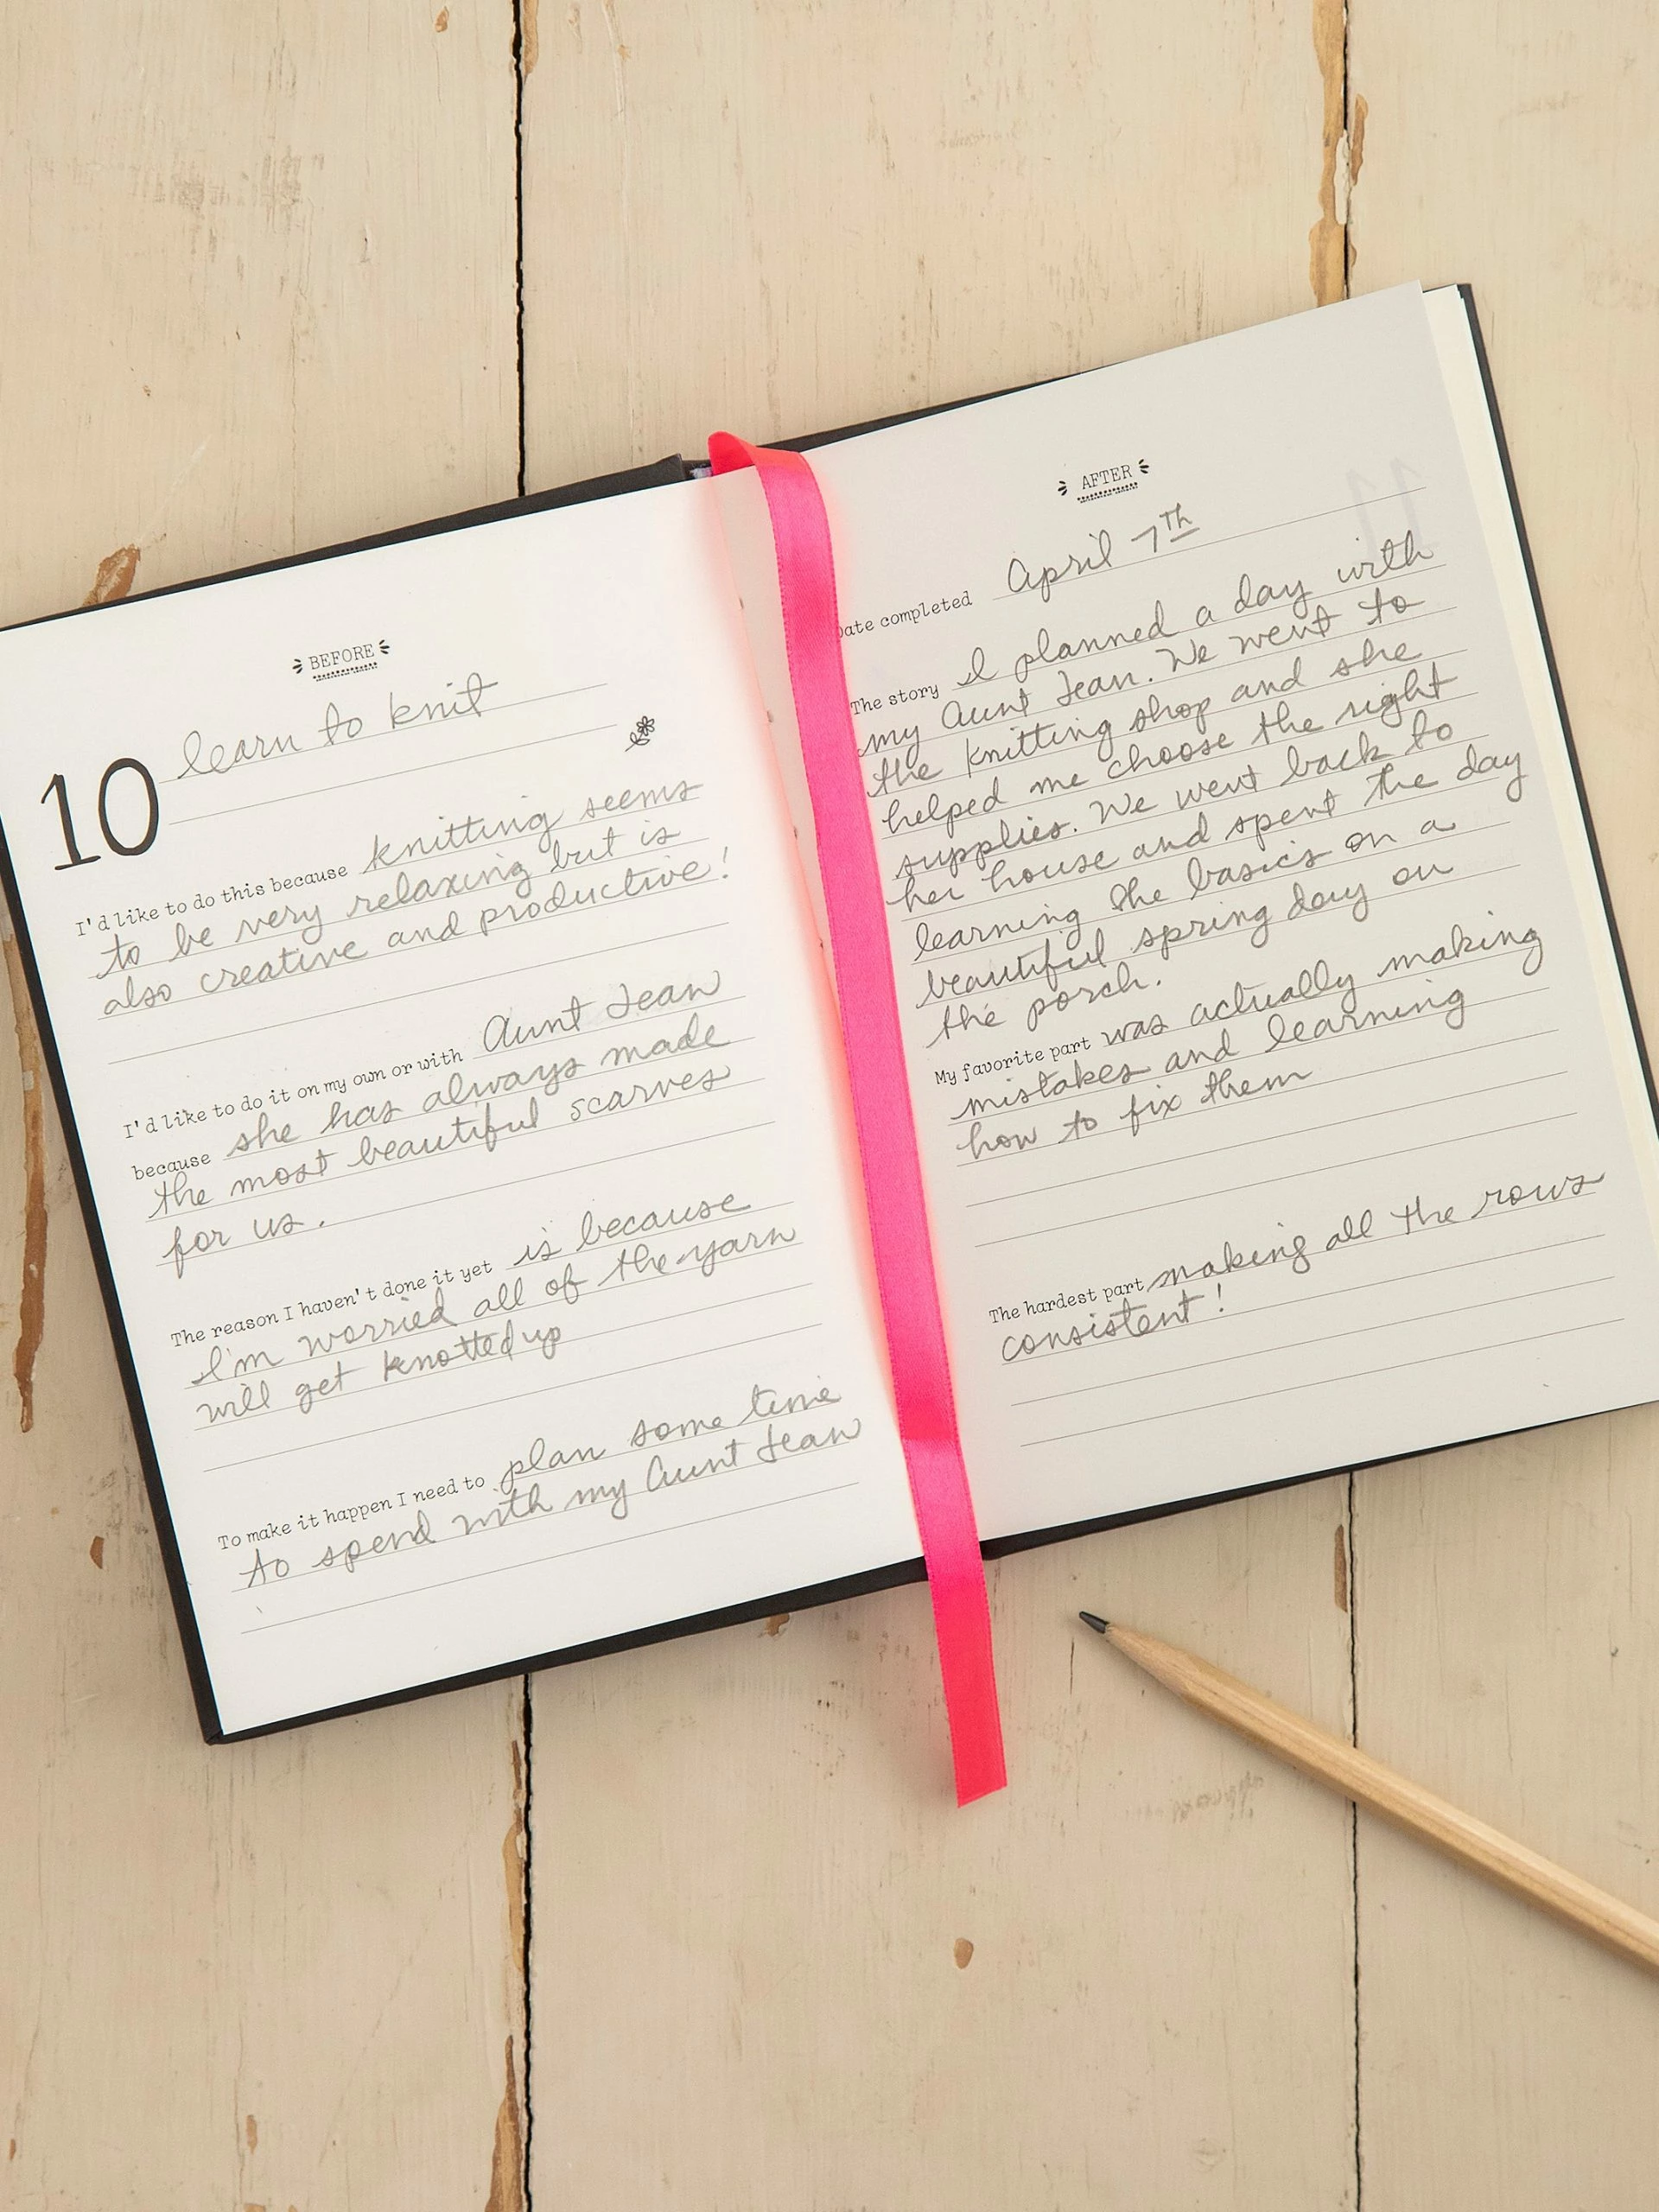 BEFORE
10 learn to knit
I'd like to do this because knitting seems
to be very relaxing but is
also creative and productive!
I'd like to do it on my own or with Aunt Jean
because she has always made
the most beautiful scarves
for us.
The reason I haven't done it yet is because
I'm worried all of the yarn
will get knotted up
To make it happen I need to plan some time
to spend with my Aunt Jean
AFTER
Date completed April 7th
The story I planned a day with
my Aunt Jean. We went to
the knitting shop and she
helped me choose the right
supplies. We went back to
her house and spent the day
learning the basics on a
beautiful spring day on
the porch.
My favorite part was actually making
mistakes and learning
how to fix them
The hardest part making all the rows
consistent!
11